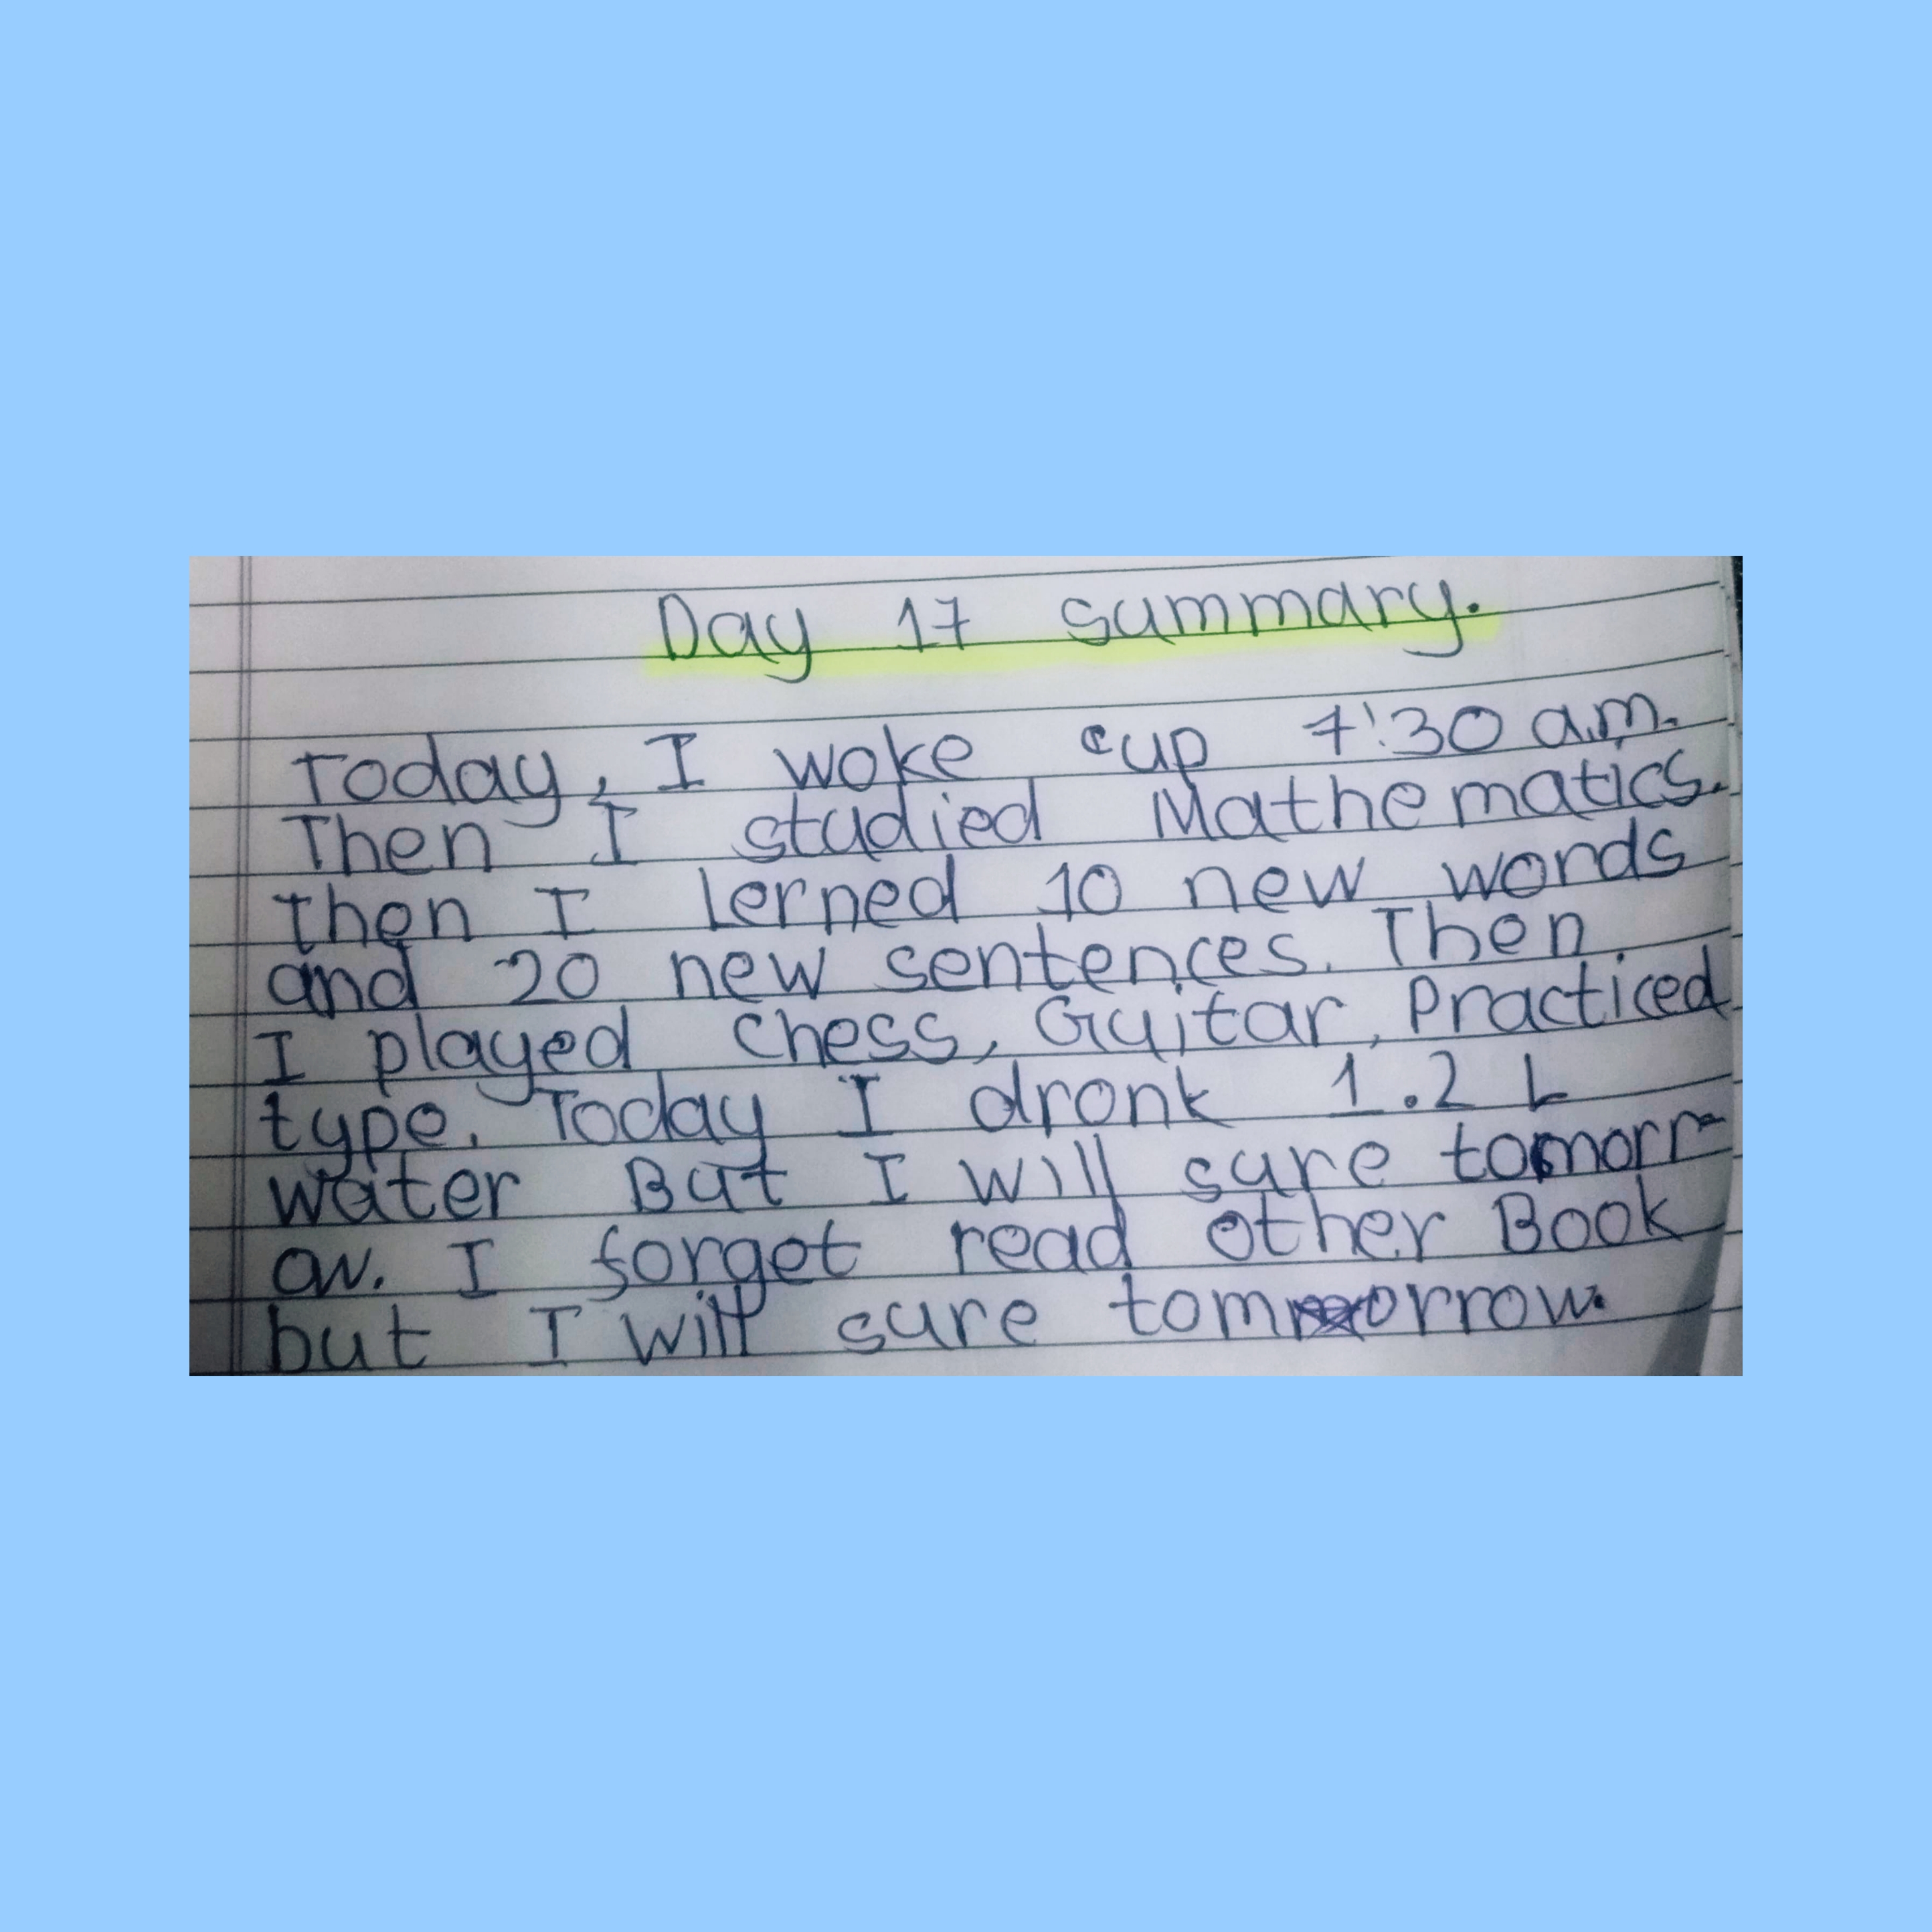 Day 17 summary.
Today, I woke up 7:30 a.m.
Then I studied Mathematics.
then I lerned 10 new words
and 20 new sentences. Then
I played chess, Guitar, Practiced
type. Today I dronk 1.2 L
water But I will sure tomorr-
ow. I forget read other Book
but I will sure tomorrow.